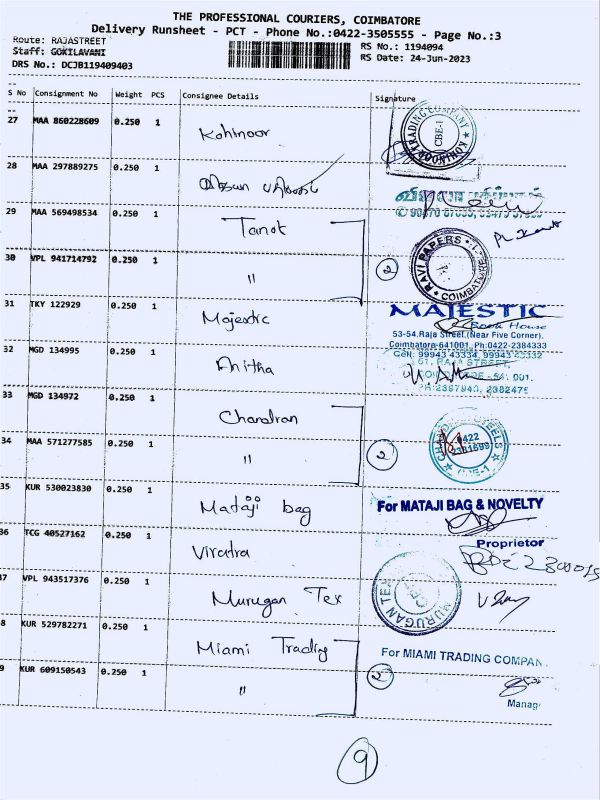 THE PROFESSIONAL COURIERS, COIMBATORE
Delivery Runsheet - PCT - Phone No.:0422-3505555 - Page No.:3
Route: RAJASTREET
Staff: GOKILAVANI
DRS No.: DCJB119409403
RS No.: 1194094
RS Date: 24-Jun-2023
S No Consignment No Weight PCS Consignee Details Signature
27 MAA 860228609 0.250 1 Kohinoor
KOHINOOR TRADING COMPANY CBE-1
28 MAA 297889275 0.250 1
29 MAA 569498534 0.250 1 Tanot
30 VPL 941714792 0.250 1 "
2
RAVI PAPERS COIMBATORE
31 TKY 122929 0.250 1 Majestic
MAJESTIC
Book House
53-54,Raja Street,(Near Five Corner),
Coimbatore-641001, Ph:0422-2384333
Cell: 99943 43334, 99943 43332
32 MGD 134995 0.250 1 Anitha
61, RAJA STREET,
PH:2397940, 2382475
33 MGD 134972 0.250 1 Chandran
34 MAA 571277585 0.250 1 "
2
0422
2381699
35 KUR 530023830 0.250 1 Mataji bag
For MATAJI BAG & NOVELTY
Proprietor
36 TCG 40527162 0.250 1 Viratra
37 VPL 943517376 0.250 1 Murugan Tex
MURUGAN TEX
8 KUR 529782271 0.250 1 Miami Trading
For MIAMI TRADING COMPAN
9 KUR 609150543 0.250 1 "
2
Manag
9